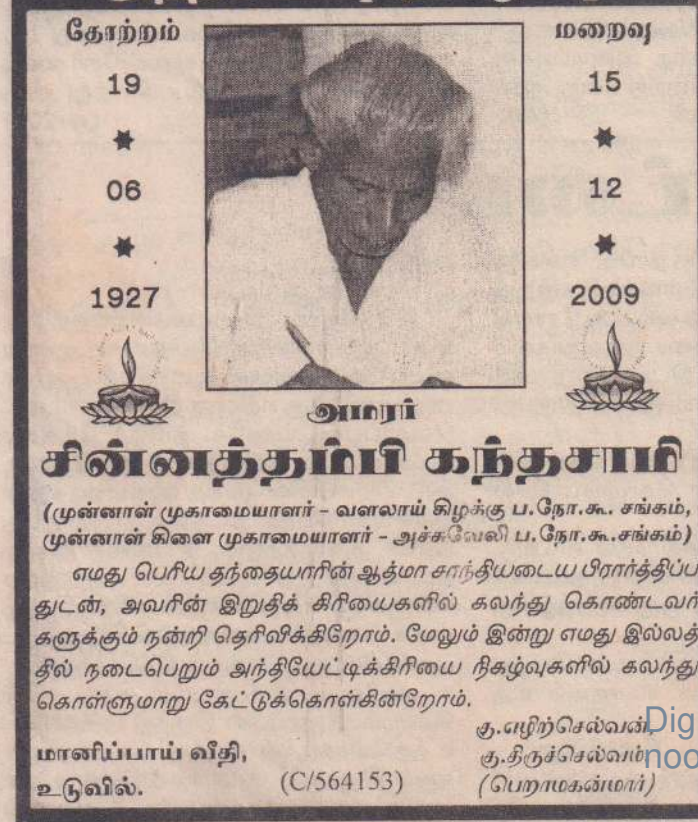 தோற்றம்
19
06
1927
மறைவு
15
12
2009
அமரர்
சின்னத்தம்பி கந்தசாமி
(முன்னாள் முகாமையாளர் – வளலாய் கிழக்கு ப.நோ.கூ. சங்கம்,
முன்னாள் கிளை முகாமையாளர் – அச்சுவேலி ப.நோ.கூ.சங்கம்)
எமது பெரிய தந்தையாரின் ஆத்மா சாந்தியடைய பிரார்த்திப்ப
துடன், அவரின் இறுதிக் கிரியைகளில் கலந்து கொண்டவர்
களுக்கும் நன்றி தெரிவிக்கிறோம். மேலும் இன்று எமது இல்லத்
தில் நடைபெறும் அந்தியேட்டிக்கிரியை நிகழ்வுகளில் கலந்து
கொள்ளுமாறு கேட்டுக்கொள்கின்றோம்.
கு.எழிற்செல்வன்,
கு.திருச்செல்வம்
(பெறாமகன்மார்)
மானிப்பாய் வீதி,
உடுவில்.
(C/564153)
Dig
noo